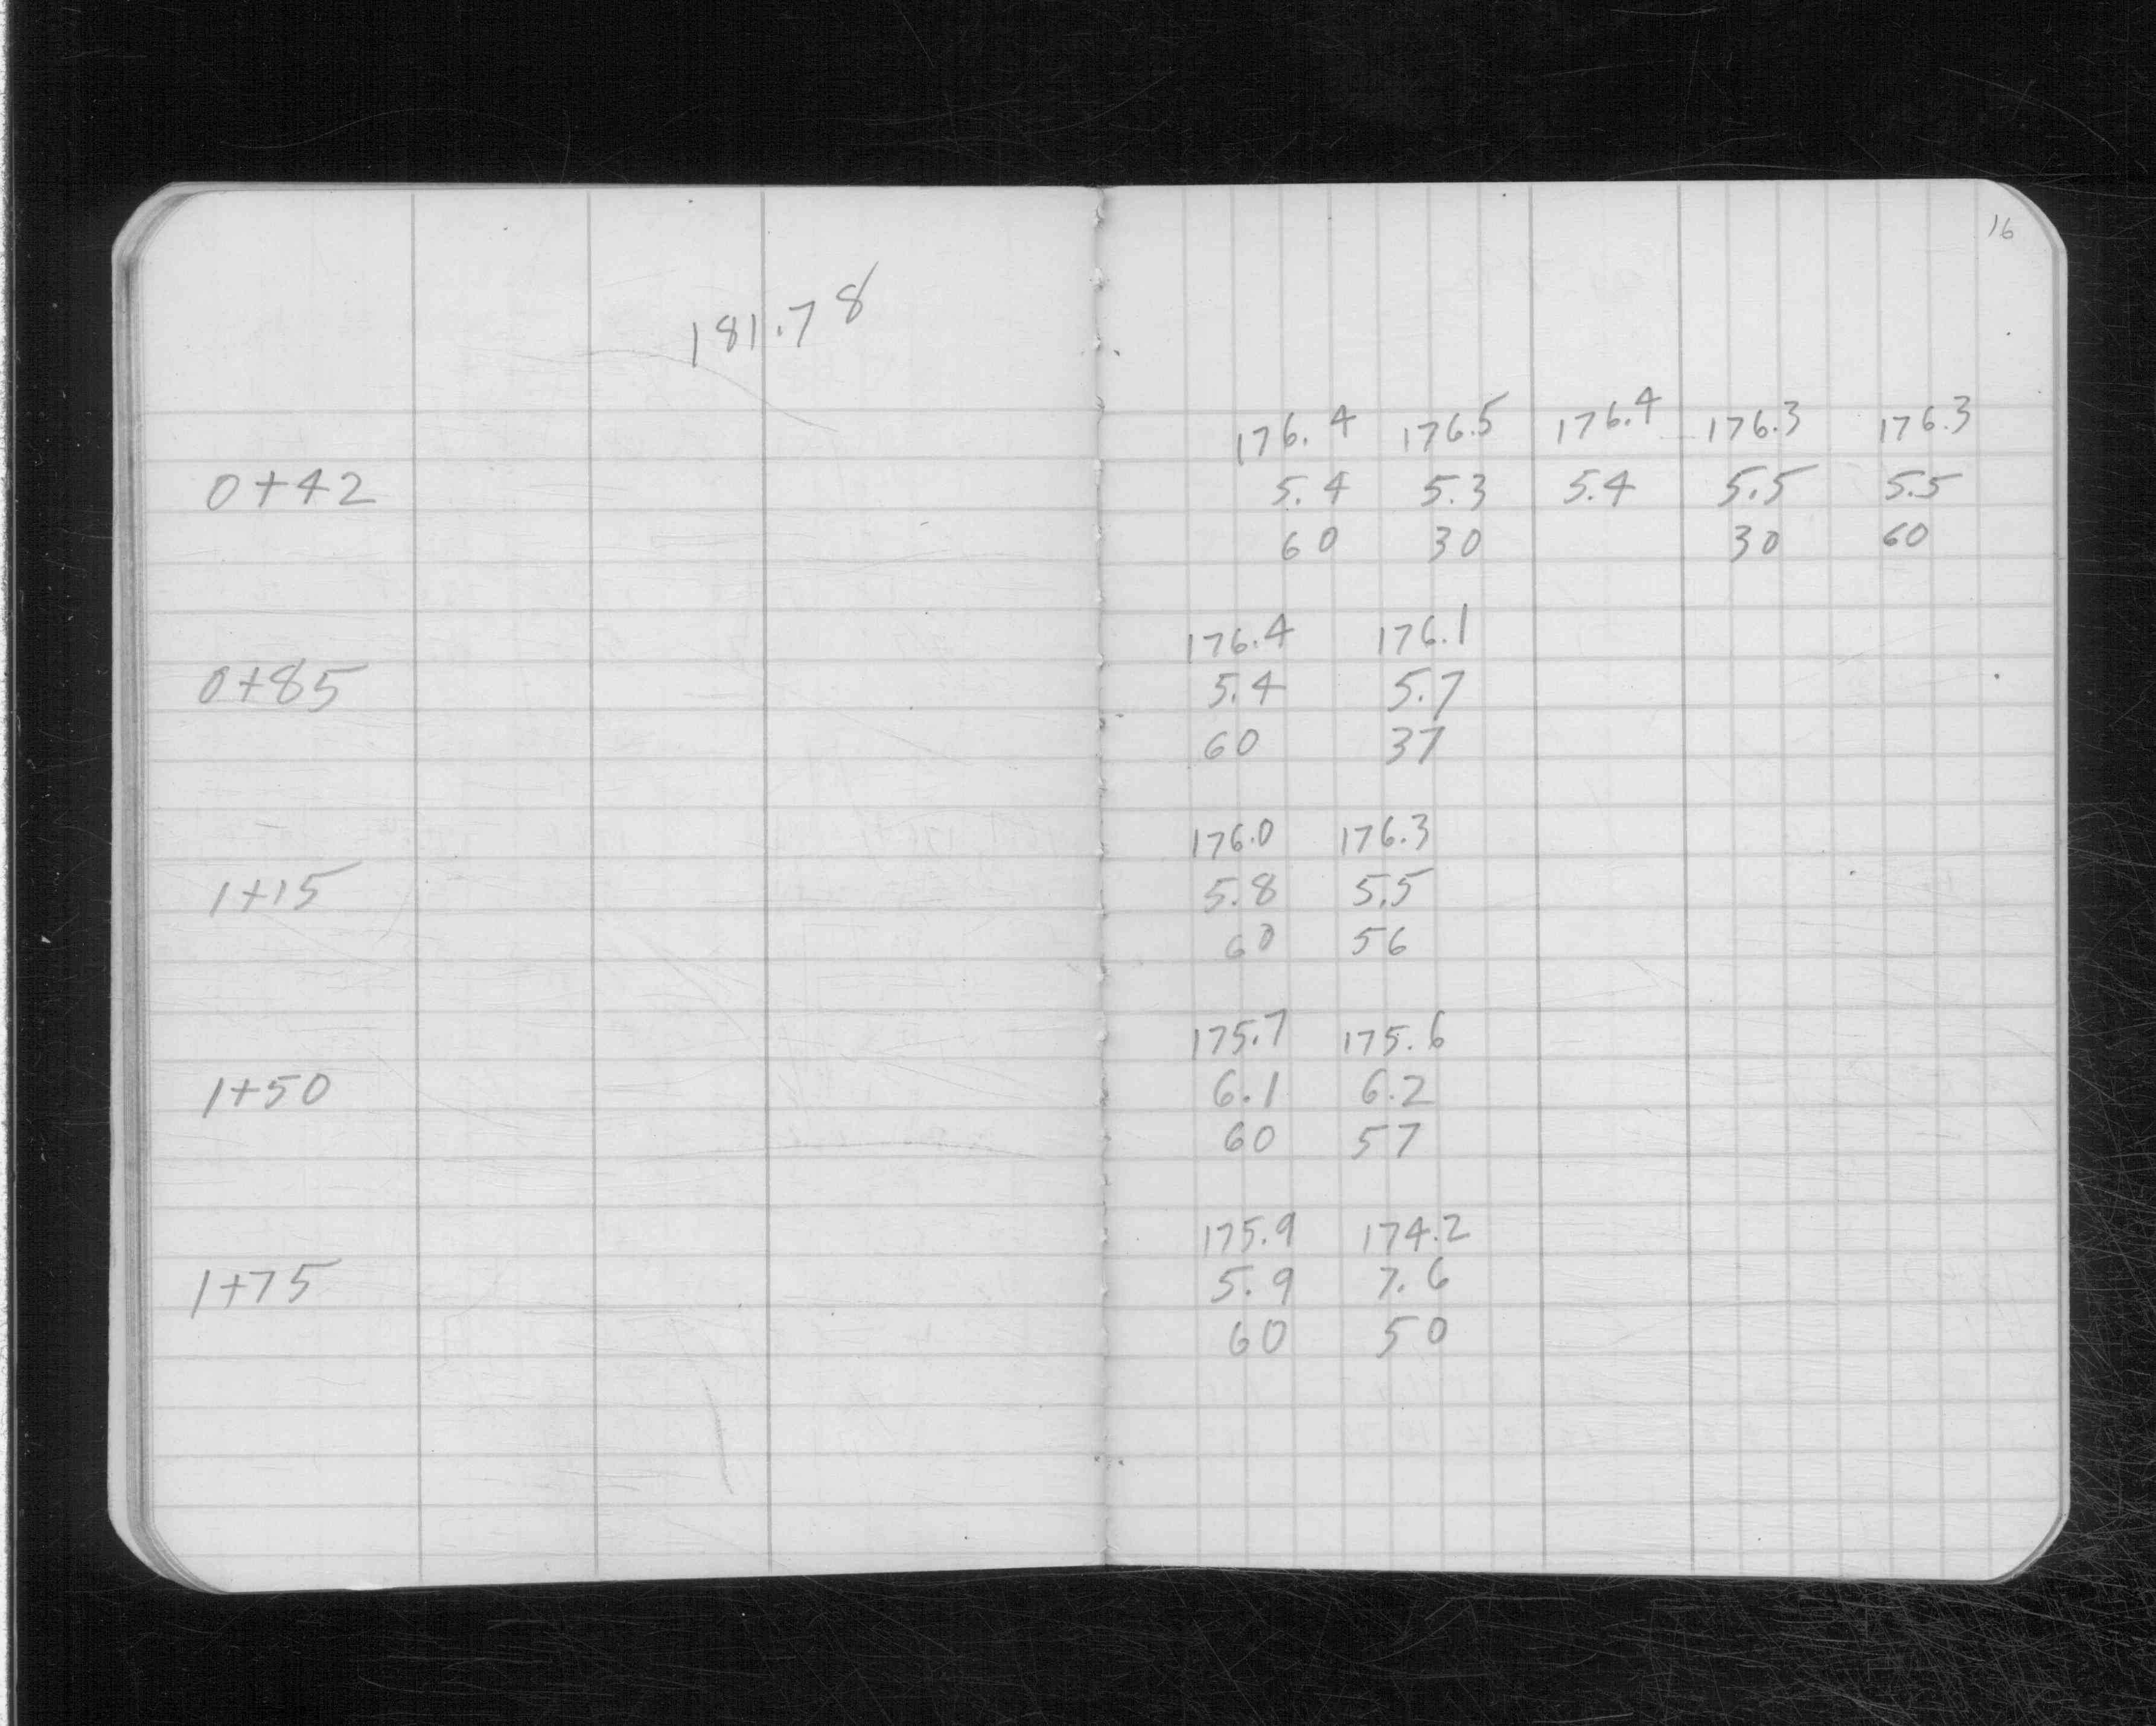 16
181.78
176.4 176.5 176.4 176.3 176.3
0+42 5.4 5.3 5.4 5.5 5.5
60 30 30 60
176.4 176.1
0+85 5.4 5.7
60 37
176.0 176.3
1+15 5.8 5.5
60 56
175.7 175.6
1+50 6.1 6.2
60 57
175.9 174.2
1+75 5.9 7.6
60 50